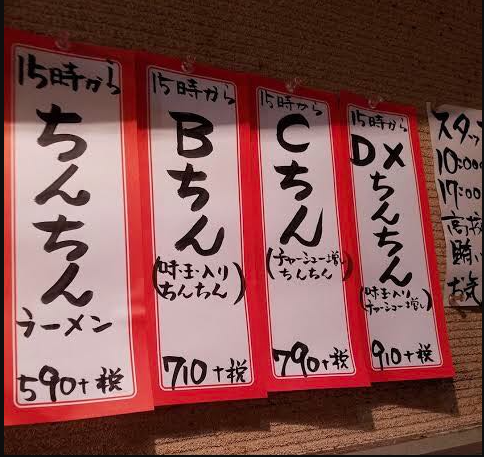 15時から
ちんちん
ラーメン
590+税
15時から
Bちん
(味玉入り
ちんちん)
710+税
15時から
Cちん
(チャーシュー増し
ちんちん)
790+税
15時から
DX
ちんちん
(味玉入り
チャーシュー増し)
910+税
スタッ
10:00
17:00
高校
賄い
お気